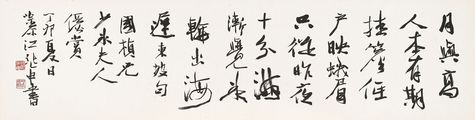 月與高
人本有期
挂簷低
戶映蛾眉
只從昨夜
十分滿
漸覺冰
輪出海
遲東坡句
國楨兄
夫人
儷賞
丁卯夏日
江張書